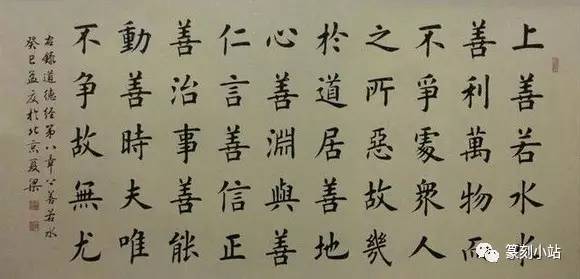 上善若水水
善利萬物而
不爭處衆人
之所惡故幾
於道居善地
心善淵與善
仁言善信正
善治事善能
動善時夫唯
不争故無尤
右錄道德經第八章上善若水
癸巳孟夏於北京夏梁
篆刻小站